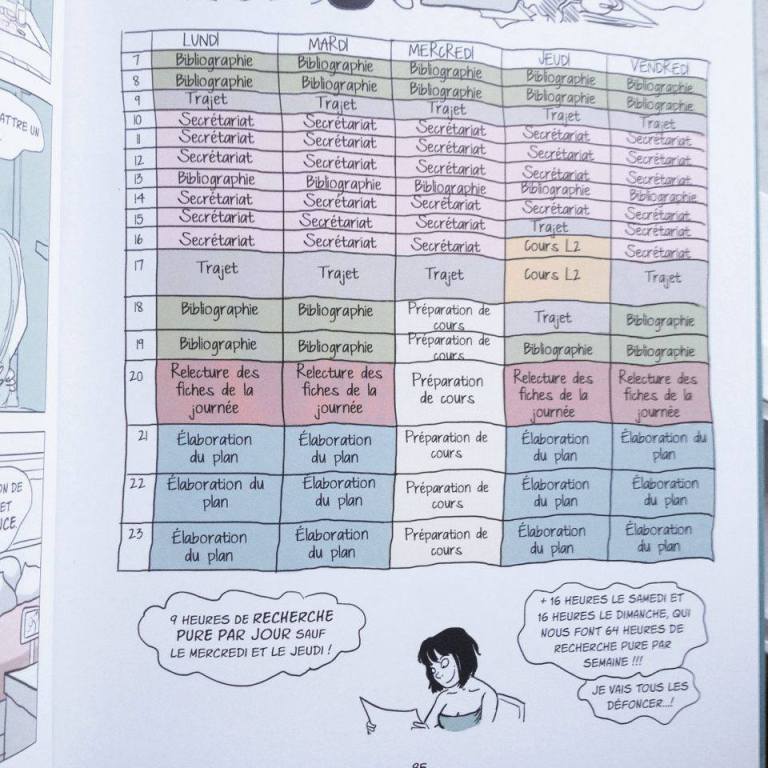 LUNDI MARDI MERCREDI JEUDI VENDREDI
7 Bibliographie Bibliographie Bibliographie Bibliographie Bibliographie
8 Bibliographie Bibliographie Bibliographie Bibliographie Bibliographie
9 Trajet Trajet Trajet Trajet Trajet
10 Secrétariat Secrétariat Secrétariat Secrétariat Secrétariat
11 Secrétariat Secrétariat Secrétariat Secrétariat Secrétariat
12 Secrétariat Secrétariat Secrétariat Secrétariat Secrétariat
13 Bibliographie Bibliographie Bibliographie Bibliographie Bibliographie
14 Secrétariat Secrétariat Secrétariat Secrétariat Secrétariat
15 Secrétariat Secrétariat Secrétariat Trajet Secrétariat
16 Secrétariat Secrétariat Secrétariat Cours L2 Secrétariat
17 Trajet Trajet Trajet Cours L2 Trajet
18 Bibliographie Bibliographie Préparation de Trajet Bibliographie
cours
19 Bibliographie Bibliographie Préparation de Bibliographie Bibliographie
cours
20 Relecture des Relecture des Préparation Relecture des Relecture des
fiches de la fiches de la de cours fiches de la fiches de la
journée journée journée journée
21 Élaboration Élaboration Préparation de Élaboration Élaboration du
du plan du plan cours du plan plan
22 Élaboration du Élaboration Préparation de Élaboration Élaboration
plan du plan cours du plan du plan
23 Élaboration Élaboration Préparation de Élaboration Élaboration
du plan du plan cours du plan du plan
9 HEURES DE RECHERCHE
PURE PAR JOUR SAUF
LE MERCREDI ET LE JEUDI !
+ 16 HEURES LE SAMEDI ET
16 HEURES LE DIMANCHE, QUI
NOUS FONT 64 HEURES DE
RECHERCHE PURE PAR
SEMAINE !!!
JE VAIS TOUS LES
DÉFONCER...!
ATTRE UN
ON DE
ET